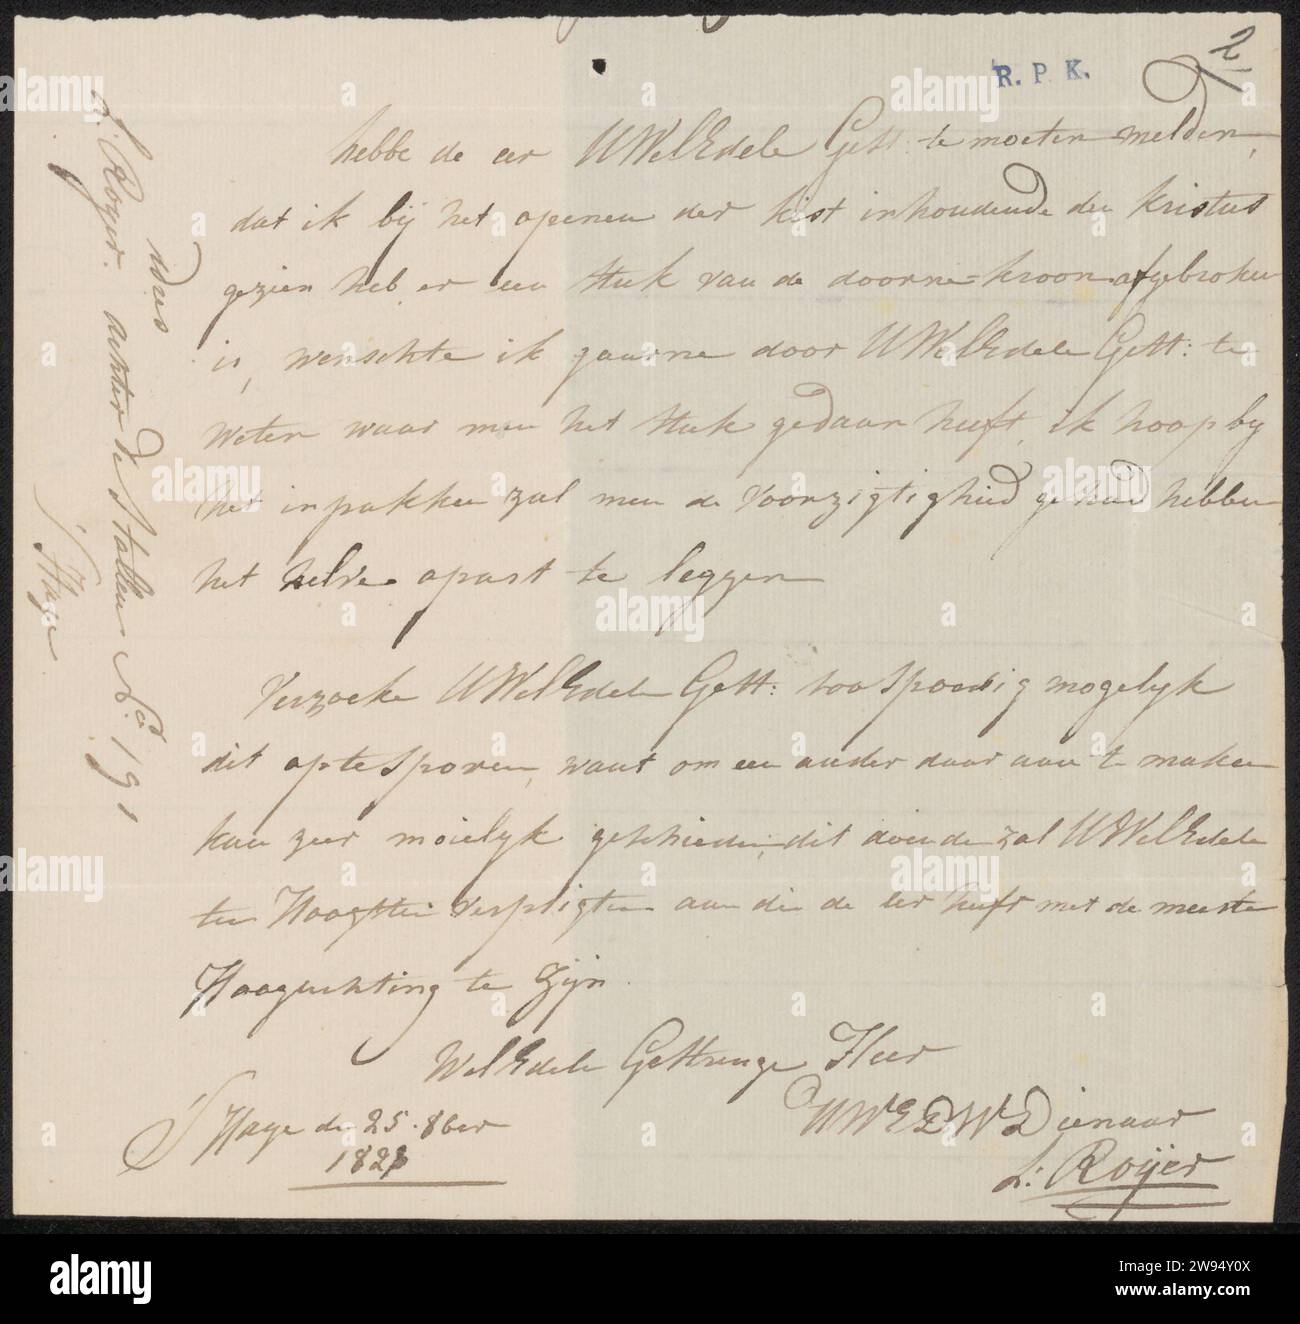 2
R. P. K.
hebbe de eer UWelEdele Gest: te moeten melden,
dat ik bij het openen der kist inhoudende den Kristus
gezien heb er een stuk van de doorne-kroon afgebroken
is, wenschte ik gaarne door UWelEdele Gest: te
weten waar men het stuk gedaan heeft, ik hoop by
het inpakken zal men de voorzigtigheid gehad hebben
het zelve apart te leggen
Verzoeke UWelEdele Gest: zoo spoedig mogelyk
dit opte sporen, want om een ander daar aan te maken
kan zeer moielyk geschieden, dit doende zal UWelEdele
ten Hoogsten verpligten aan die de eer heeft met de meeste
Hoogachting te Zijn
WelEdele Gestrenge Heer
UWEDW Dienaar
L: Roijer
S'Hage den 25. 8ber
182
adres
L: Royer. achter de Stallen No. 191
S'Hage
alamy
Image ID: 2W94Y0X
www.alamy.com